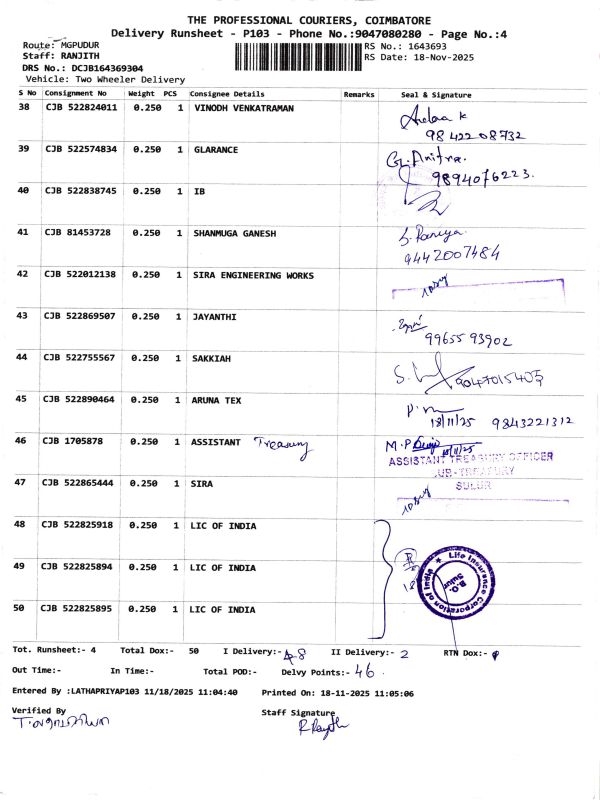 THE PROFESSIONAL COURIERS, COIMBATORE
Delivery Runsheet - P103 - Phone No.:9047080280 - Page No.:4
Route: MGPUDUR RS No.: 1643693
Staff: RANJITH RS Date: 18-Nov-2025
DRS No.: DCJB164369304
Vehicle: Two Wheeler Delivery
S No Consignment No Weight PCS Consignee Details Remarks Seal & Signature
38 CJB 522824011 0.250 1 VINODH VENKATRAMAN
98422 08732
39 CJB 522574834 0.250 1 GLARANCE G. Anitra.
9894076223.
40 CJB 522838745 0.250 1 IB
41 CJB 81453728 0.250 1 SHANMUGA GANESH S. Paniya
9442007484
42 CJB 522012138 0.250 1 SIRA ENGINEERING WORKS
43 CJB 522869507 0.250 1 JAYANTHI
99655 93902
44 CJB 522755567 0.250 1 SAKKIAH
9047015405
45 CJB 522890464 0.250 1 ARUNA TEX
18/11/25 9843221312
46 CJB 1705878 0.250 1 ASSISTANT Treasury M.P
18/11/25
ASSISTANT TREASURY OFFICER
SUB-TREASURY
SULUR
47 CJB 522865444 0.250 1 SIRA
48 CJB 522825918 0.250 1 LIC OF INDIA
49 CJB 522825894 0.250 1 LIC OF INDIA
Life Insurance Corporation of India
B.O.
Sulur
50 CJB 522825895 0.250 1 LIC OF INDIA
Tot. Runsheet:- 4 Total Dox:- 50 I Delivery:- 48 II Delivery:- 2 RTN Dox:-
Out Time:- In Time:- Total POD:- Delvy Points:- 46
Entered By :LATHAPRIYAP103 11/18/2025 11:04:40 Printed On: 18-11-2025 11:05:06
Verified By Staff Signature